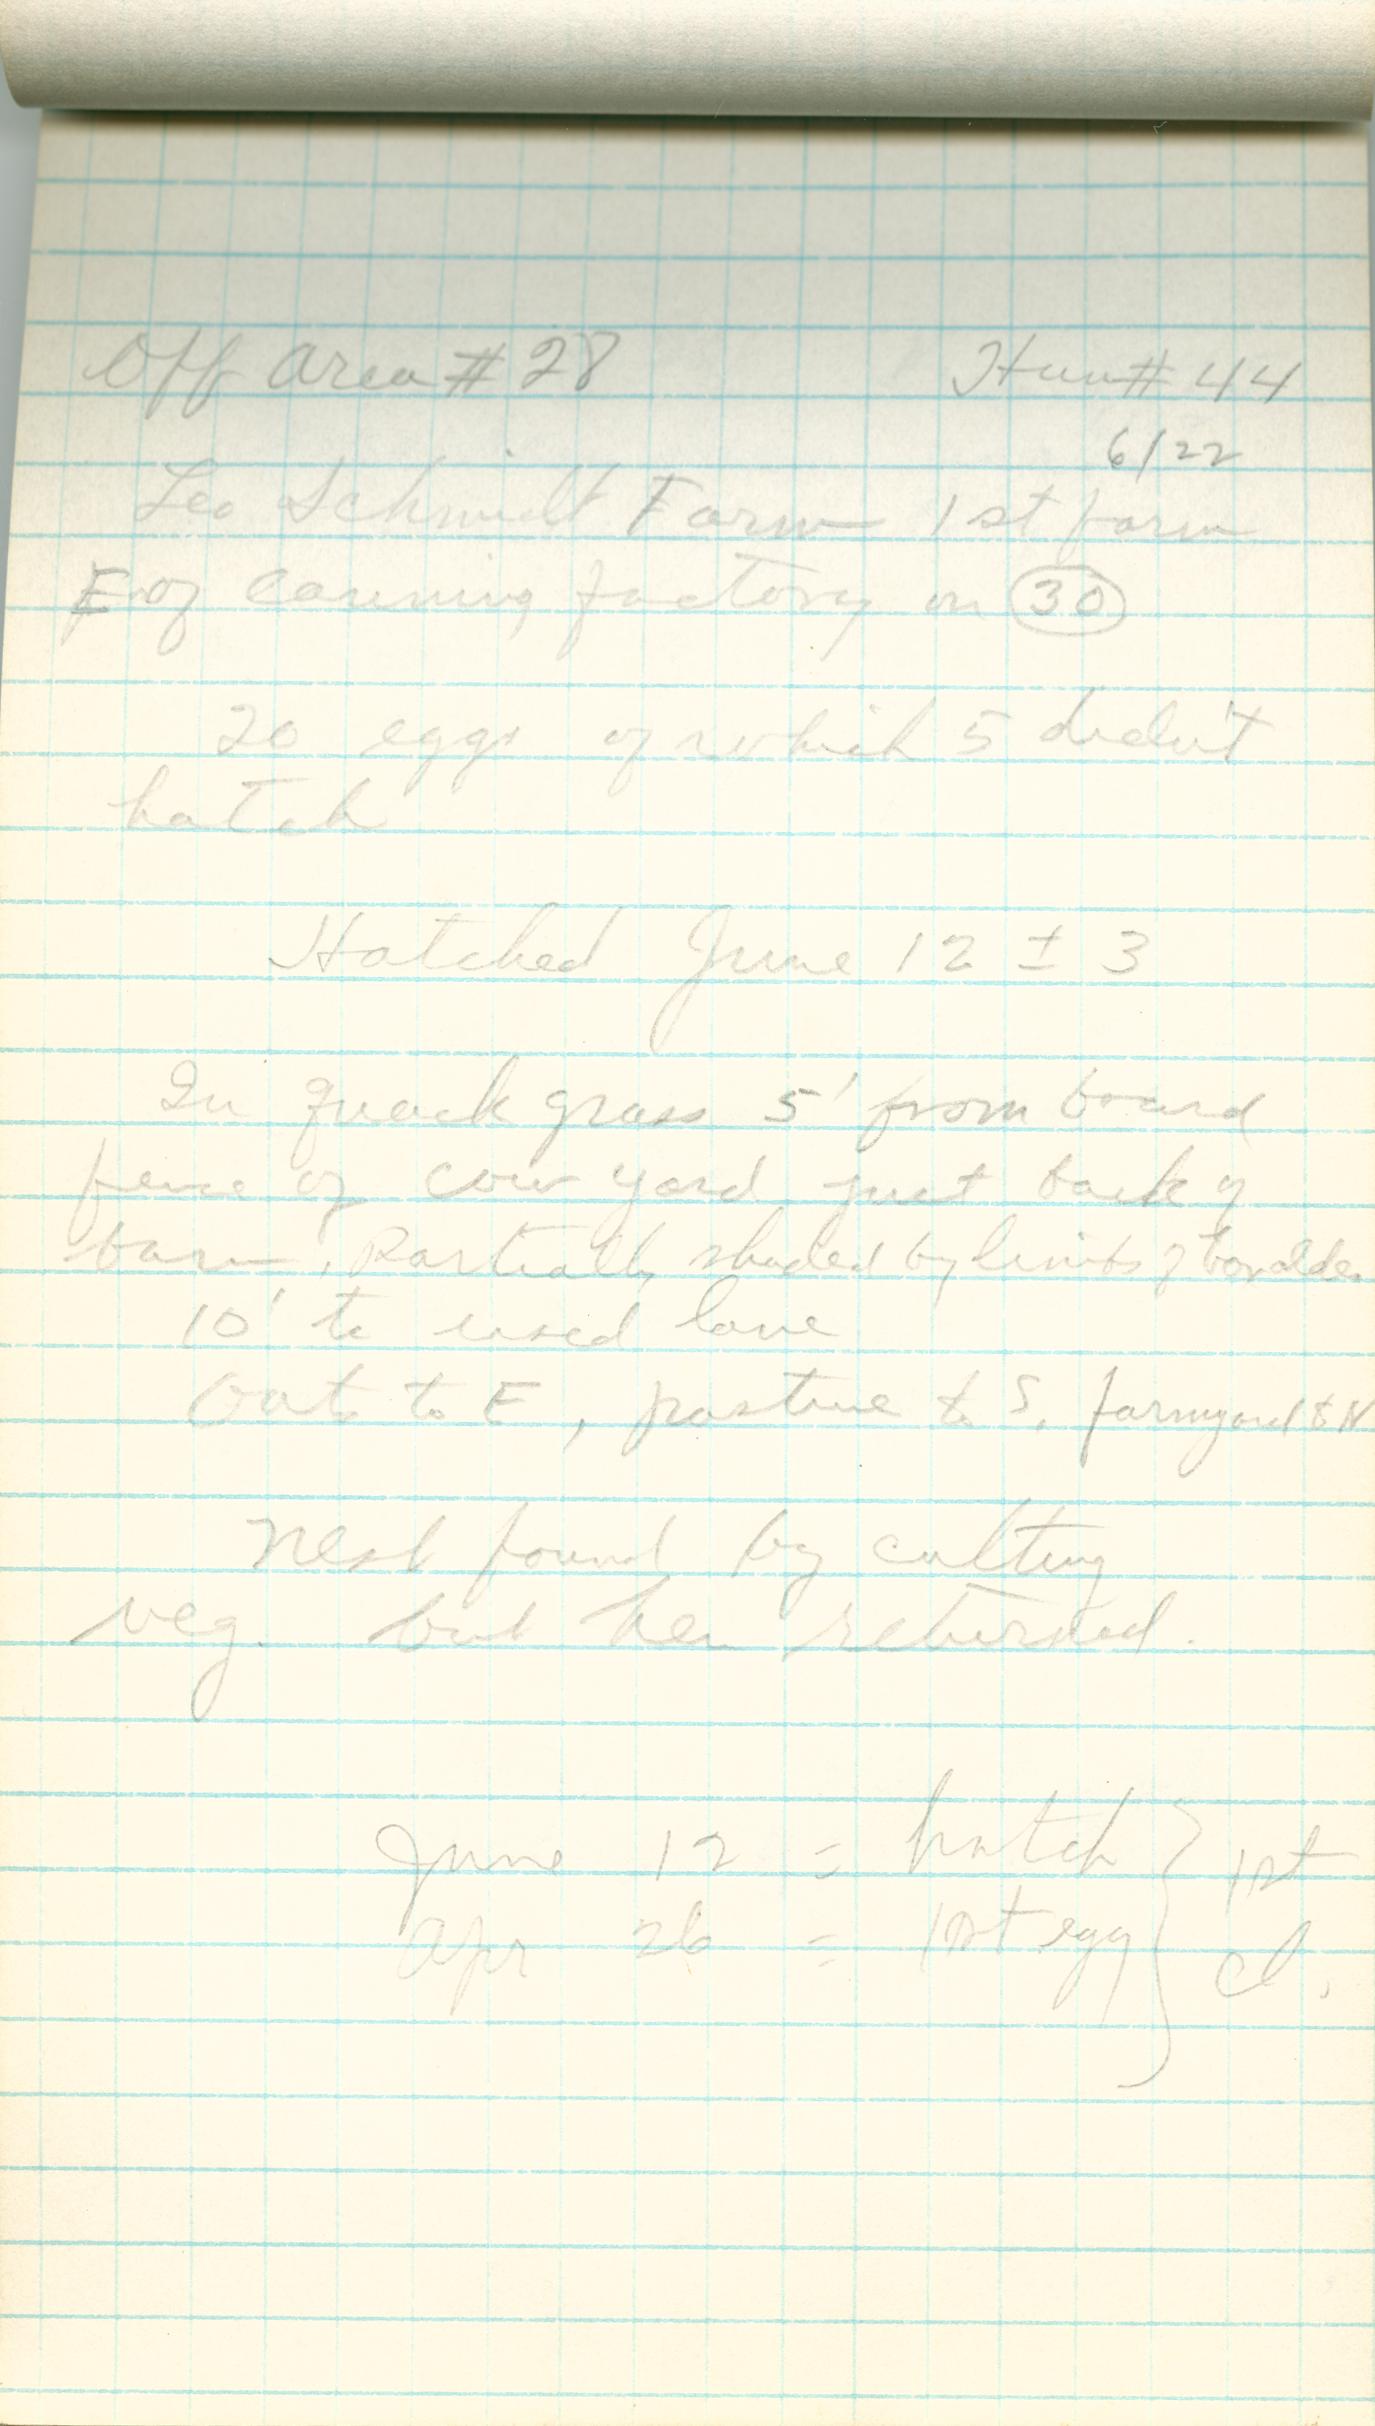 Off Area # 28 Hun # 44
6/22
Leo Schmidt Farm 1st farm
E of canning factory on 30
20 eggs of which 5 didn't
hatch
Hatched June 12 ± 3
In quack grass 5' from board
fence of cow yard just back of
barn. Partially shaded by limbs of boxelder
10' to used lane
Oats to E, pasture to S, farmyard to N
Nest found by cutting
veg. but hen returned.
June 12 = hatch } 1st
Apr 26 = 1st egg } cl.